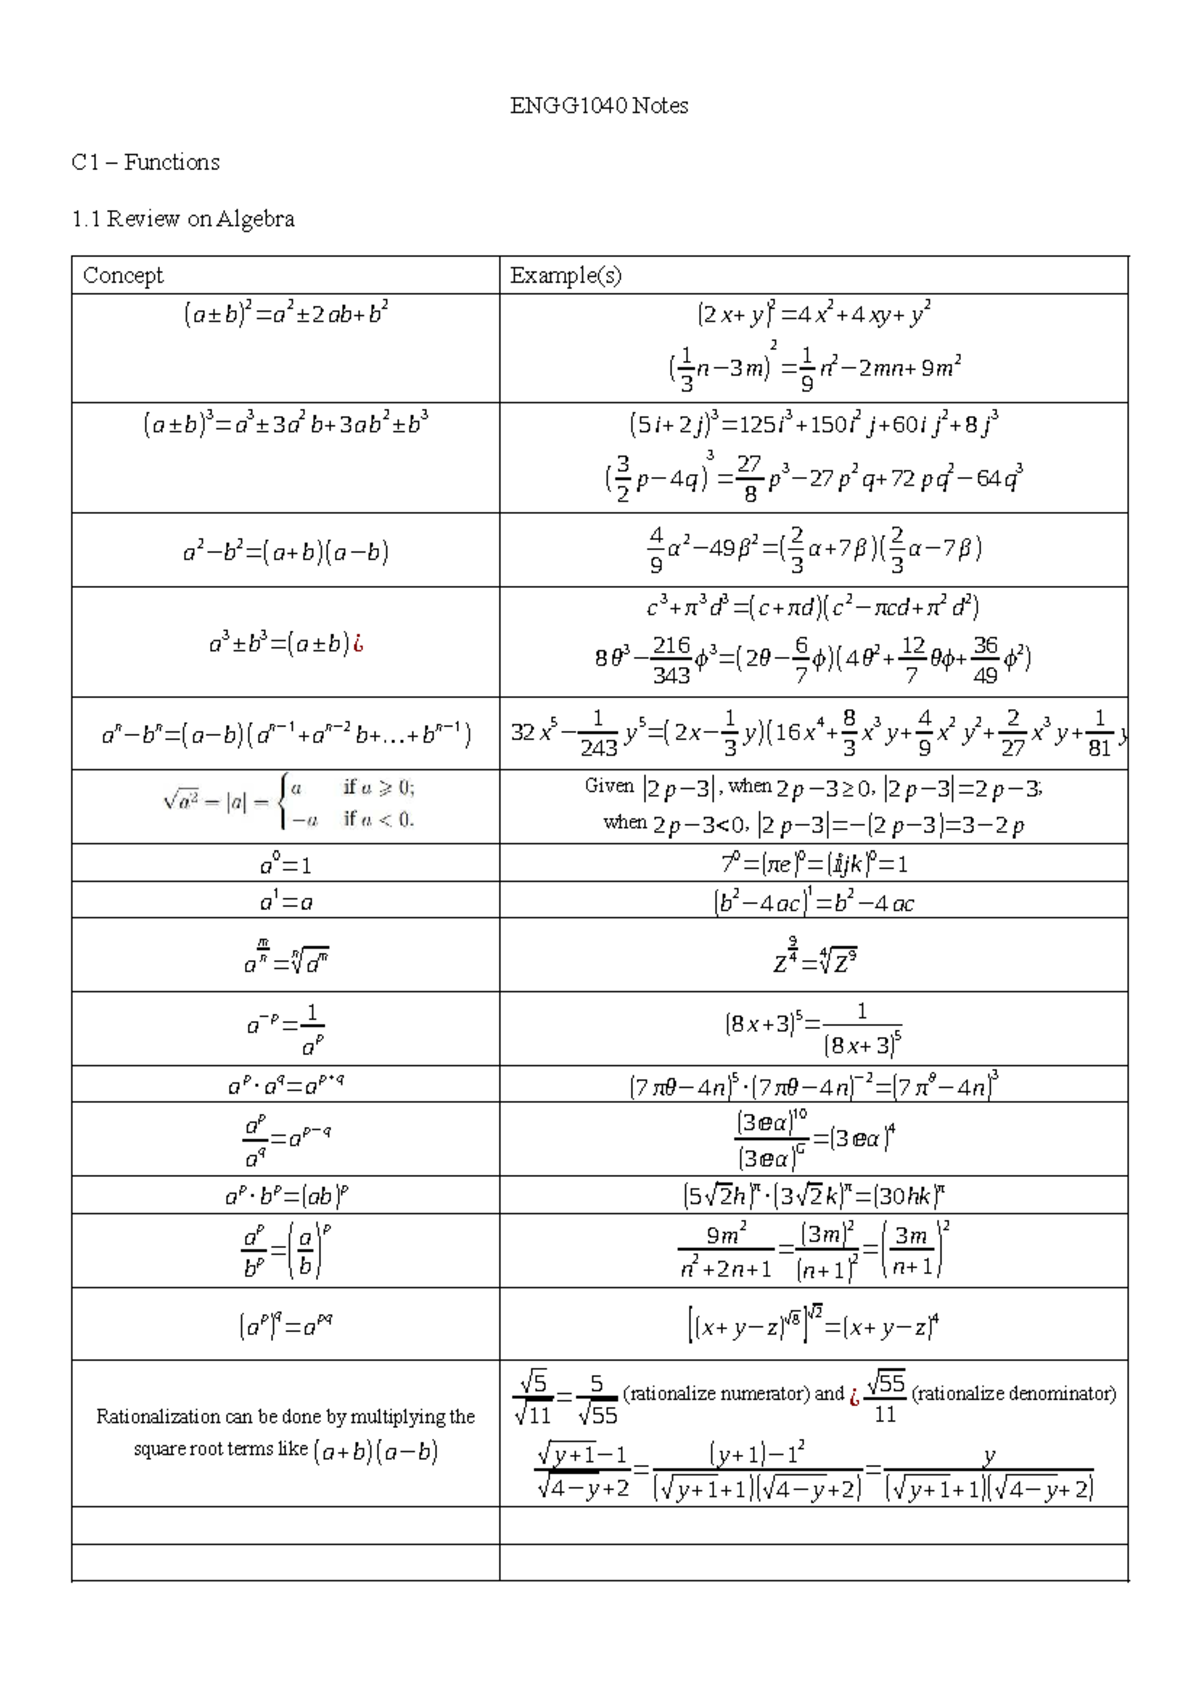 ENGG1040 Notes
C1 – Functions
1.1 Review on Algebra
Concept	Example(s)
(a±b)²=a²±2ab+b²	(2x+y)²=4x²+4xy+y²
(1/3 n−3m)²=1/9 n²−2mn+9m²
(a±b)³=a³±3a²b+3ab²±b³	(5i+2j)³=125i³+150i²j+60ij²+8j³
(3/2 p−4q)³=27/8 p³−27p²q+72pq²−64q³
a²−b²=(a+b)(a−b)	4/9 α²−49β²=(2/3 α+7β)(2/3 α−7β)
a³±b³=(a±b)¿	c³+π³d³=(c+πd)(c²−πcd+π²d²)
8θ³−216/343 ϕ³=(2θ−6/7 ϕ)(4θ²+12/7 θϕ+36/49 ϕ²)
aⁿ−bⁿ=(a−b)(aⁿ⁻¹+aⁿ⁻²b+…+bⁿ⁻¹)	32x⁵−1/243 y⁵=(2x−1/3 y)(16x⁴+8/3 x³y+4/9 x²y²+2/27 x³y+1/81 y
√a² = |a| = { a if a ⩾ 0;	Given |2p−3|, when 2p−3≥0, |2p−3|=2p−3;
−a if a < 0.	when 2p−3<0, |2p−3|=−(2p−3)=3−2p
a⁰=1	7⁰=(πe)⁰=(ijk)⁰=1
a¹=a	(b²−4ac)¹=b²−4ac
a^(m/n)=ⁿ√aᵐ	Z^(9/4)=⁴√Z⁹
a⁻ᵖ=1/aᵖ	(8x+3)⁵=1/(8x+3)⁵
aᵖ·a^q=a^(p+q)	(7πθ−4n)⁵·(7πθ−4n)⁻²=(7π^θ−4n)³
aᵖ/a^q=a^(p−q)	(3eα)¹⁰/(3eα)⁶=(3eα)⁴
aᵖ·bᵖ=(ab)ᵖ	(5√2h)^π·(3√2k)^π=(30hk)^π
aᵖ/bᵖ=(a/b)ᵖ	9m²/(n²+2n+1)=(3m)²/(n+1)²=(3m/(n+1))²
(aᵖ)^q=a^(pq)	[(x+y−z)^√8]^√2=(x+y−z)⁴
Rationalization can be done by multiplying the	√5/√11=5/√55 (rationalize numerator) and ¿ √55/11 (rationalize denominator)
square root terms like (a+b)(a−b)	(√(y+1)−1)/(√(4−y)+2)=((y+1)−1²)/((√(y+1)+1)(√(4−y)+2))=y/((√(y+1)+1)(√(4−y)+2))